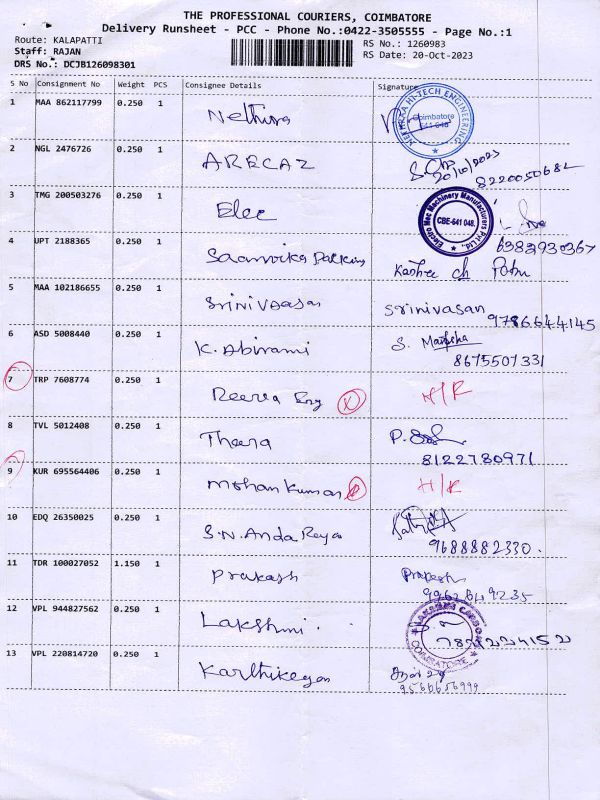 THE PROFESSIONAL COURIERS, COIMBATORE
Delivery Runsheet - PCC - Phone No.:0422-3505555 - Page No.:1
Route: KALAPATTI
Staff: RAJAN
DRS No.: DCJB126098301
RS No.: 1260983
RS Date: 20-Oct-2023
S No Consignment No Weight PCS Consignee Details Signature
1 MAA 862117799 0.250 1 Nethira
NEHRRA HI-TECH ENGINEERING
Coimbatore
641 048
2 NGL 2476726 0.250 1 ARECAZ
20/10/2023
8220050682
3 TMG 200503276 0.250 1 Elec
Electro Mec Machinery Manufacturers Pvt Ltd.,
CBE-641 048.
6383930367
4 UPT 2188365 0.250 1 Saanvika
5 MAA 102186655 0.250 1 Srinivaasan
Srinivasan
9786644145
6 ASD 5008440 0.250 1 K. Abirami
8675507331
7 TRP 7608774 0.250 1
8 TVL 5012408 0.250 1 Theera
8122780971
9 KUR 695564406 0.250 1 Mohan Kumar
10 EDQ 26350025 0.250 1 S.N. Anda Raya
9688882330.
11 TDR 100027052 1.150 1 Prakash
Prakash
12 VPL 944827562 0.250 1 Lakshmi.
LAKSHMI CARBON
COIMBATORE
13 VPL 220814720 0.250 1 Karthikeyan
9566656999